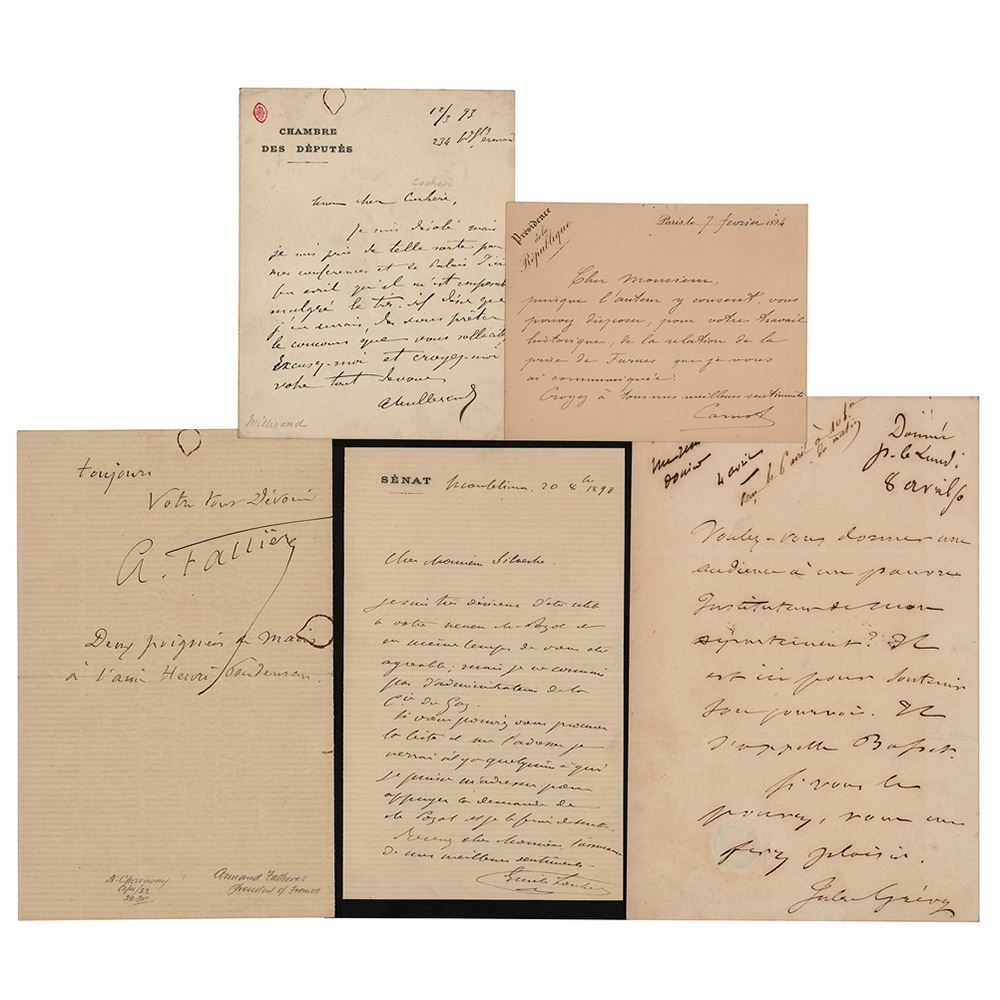 CHAMBRE
DES DÉPUTÉS
12/3 93
234 Bd St Germain
Cochery
Mon cher Cochery,
Je suis désolé mais
je suis pris de telle sorte par
mes conférences et le Palais d'ici
fin avril qu'il m'est impossible
malgré le très vif désir que
j'en aurais, de vous prêter
le concours que vous sollicitez
Excusez-moi et croyez-moi
votre tout dévoué
A Millerand
Millerand
Présidence
de la
République
Paris, le 7 fevrier 1894
Cher Monsieur,
puisque l'auteur y consent, vous
pouvez disposer, pour votre travail
historique, de la relation de la
prise de Furnes que je vous
ai communiquée.
Croyez à tous mes meilleurs sentiments
Carnot
toujours
Votre tout Dévoué
A. Fallières
Deux poignées de mains
à l'ami Henri
N. Charavay
Apr/22
Armand Fallieres
President of France
SÉNAT
Montélimar, 20 8bre 1890
Cher Monsieur Silvestre.
Je suis très désireux d'être utile
à votre neveu de Pazol et
en même temps de vous être
agréable; mais je ne connais
pas d'administrateur de la
Cie du Gaz.
Si vous pouviez vous procurer
la liste et me l'adresser je
verrai s'il y a quelqu'un à qui
je puisse m'adresser pour
appuyer la demande de
de Pazol et je le ferai de suite.
Recevez cher Monsieur l'assurance
de mes meilleurs sentiments
Emile Loubet
4 avril
le 6 avril à 10h
du matin
Donné
p. le Lundi
8 avril
Voulez-vous donner une
audience à un pauvre
Instituteur de mon
département? Il
est ici pour soutenir
son pourvoi. Il
s'appelle Basset.
Si vous le
pouvez, vous me
ferez plaisir.
Jules Grévy